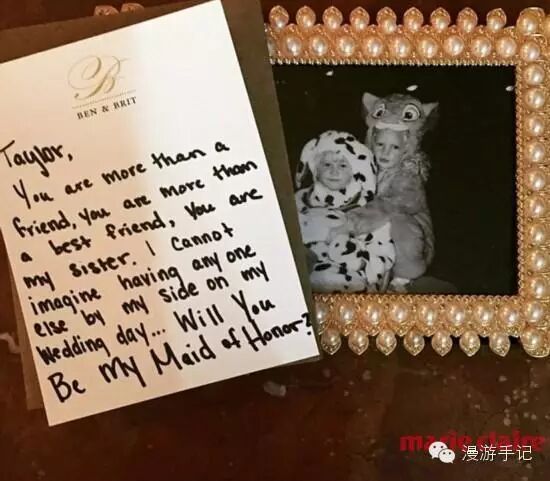 B
BEN & BRIT
Taylor,
You are more than a
friend, you are more than
a best friend, you are
my sister. I cannot
imagine having anyone
else by my side on my
wedding day... Will You
Be My Maid of Honor?
marie claire
漫游手记